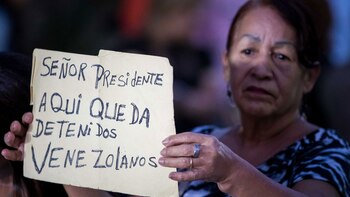 SEÑOR PRESIDENTE
AQUI QUEDA
DETENIDOS
VENEZOLANOS